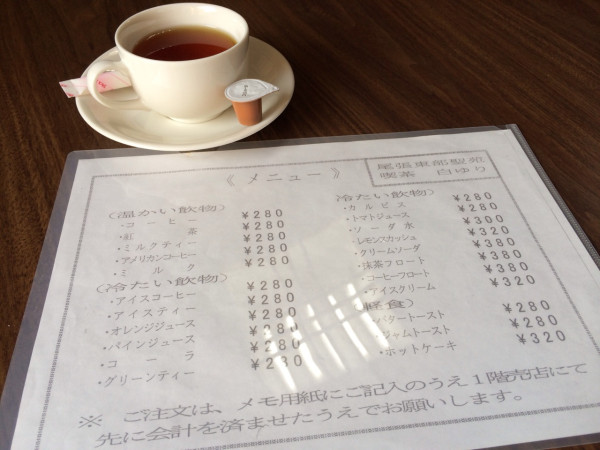 《 メニュー 》
尾張東部聖苑
喫茶 白ゆり
(温かい飲物)
・コーヒー ¥280
・紅茶 ¥280
・ミルクティー ¥280
・アメリカンコーヒー ¥280
・ミルク ¥280
(冷たい飲物)
・アイスコーヒー ¥280
・アイスティー ¥280
・オレンジジュース ¥280
・パインジュース ¥280
・コーラ ¥280
・グリーンティー ¥280
(冷たい飲物)
・カルピス ¥280
・トマトジュース ¥280
・ソーダ水 ¥300
・レモンスカッシュ ¥320
・クリームソーダ ¥380
・抹茶フロート ¥380
・コーヒーフロート ¥380
・アイスクリーム ¥320
(軽食)
・バタートースト ¥280
・ジャムトースト ¥280
・ホットケーキ ¥320
※ ご注文は、メモ用紙にご記入のうえ1階売店にて
先に会計を済ませたうえでお願いします。